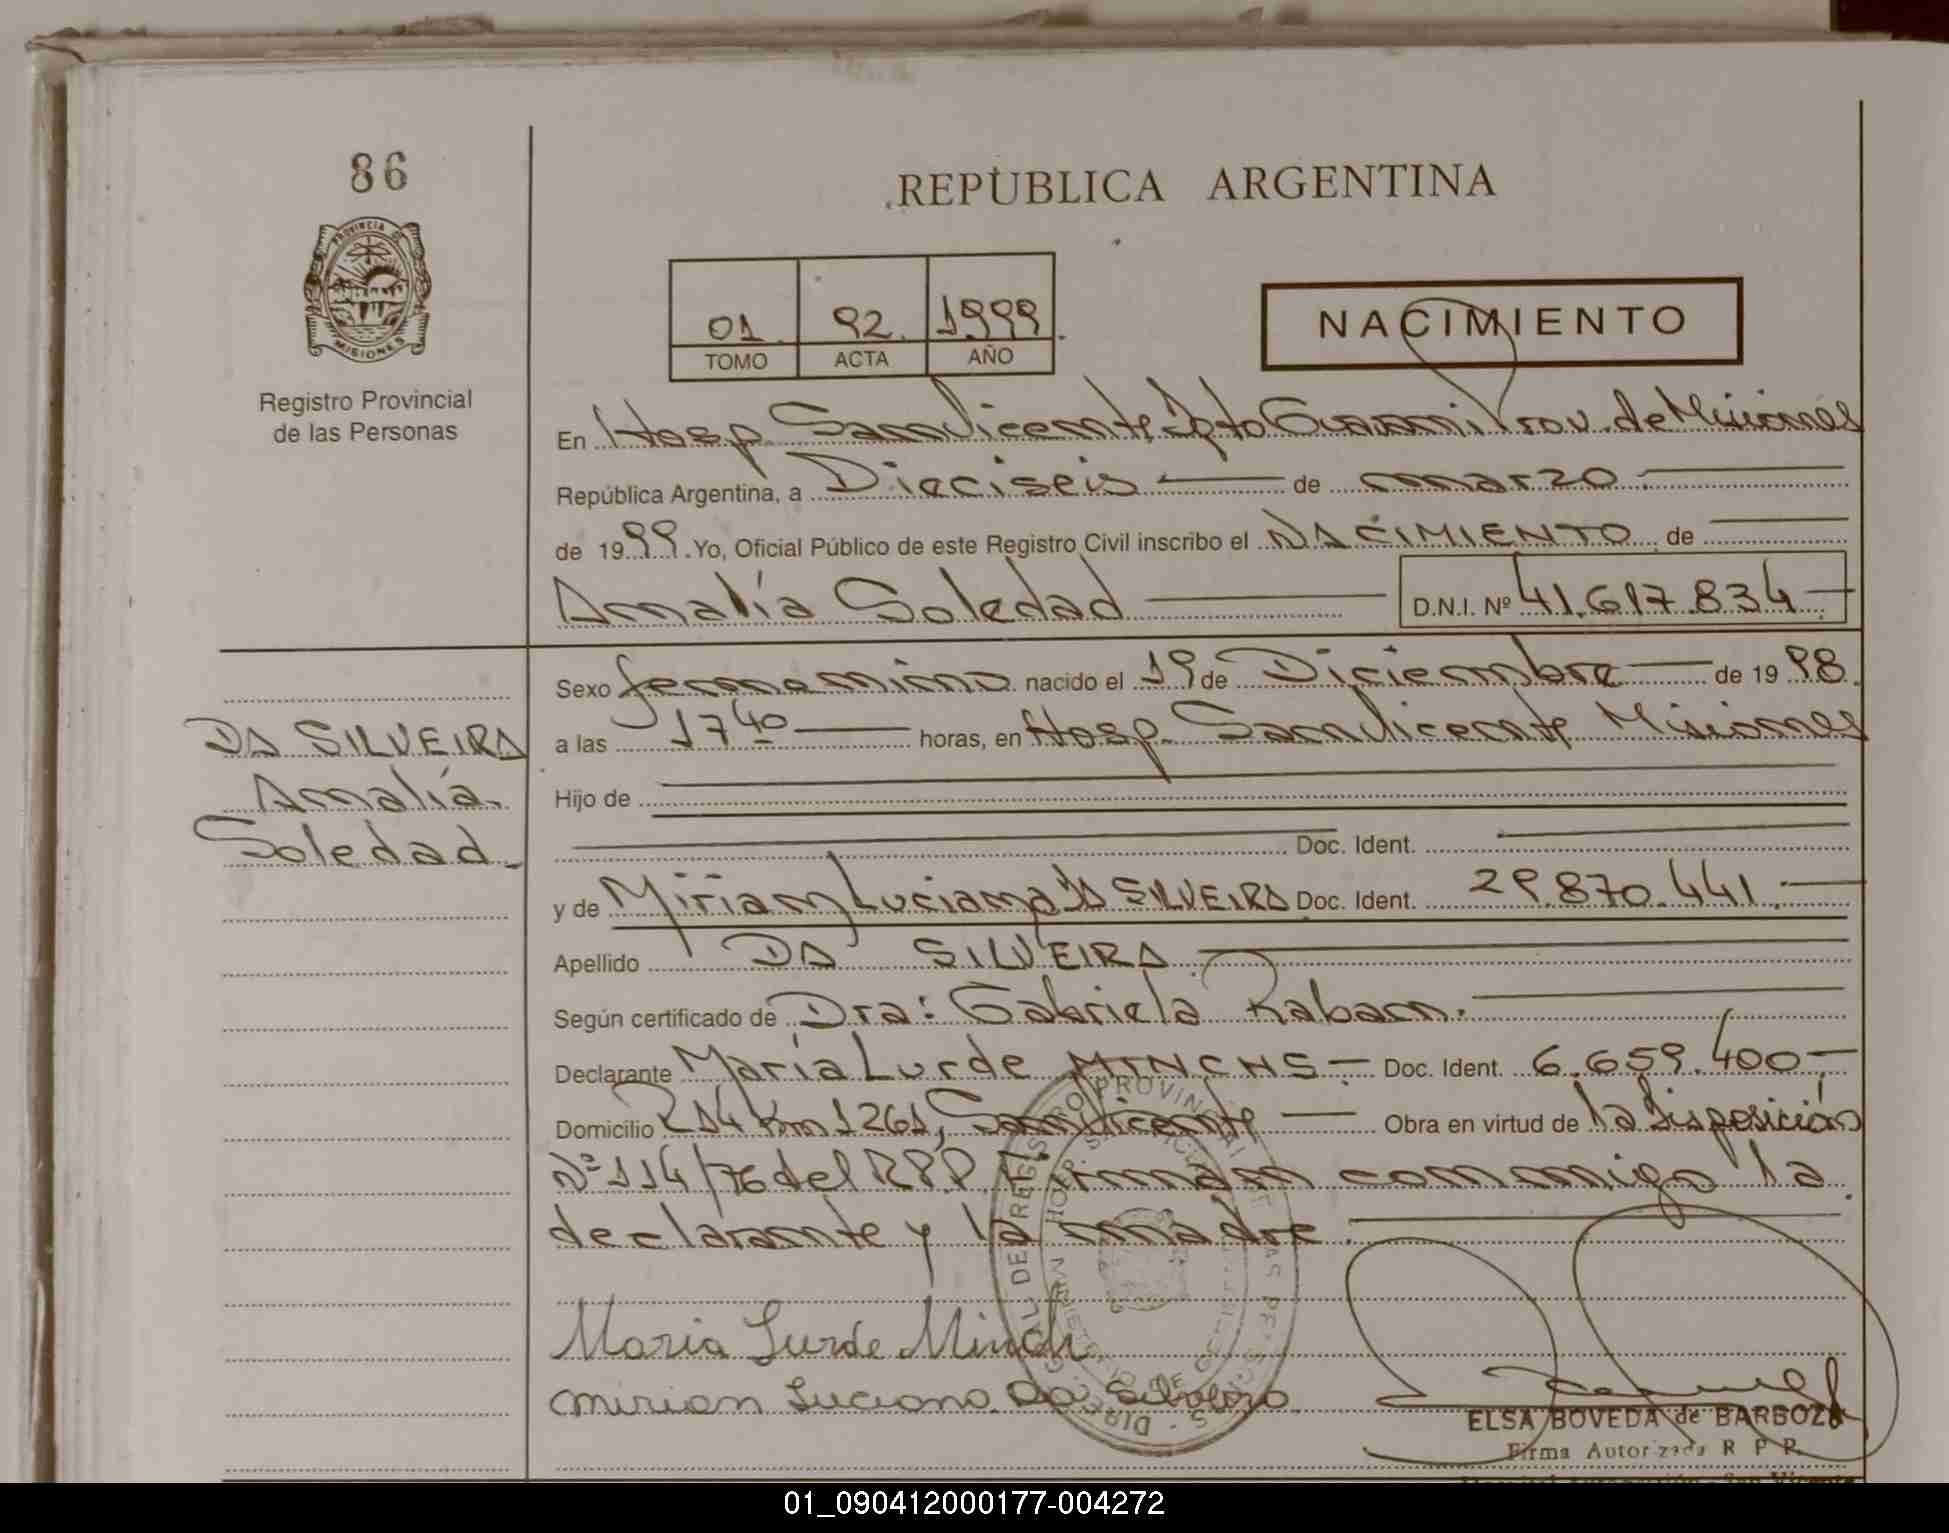 86
REPUBLICA ARGENTINA
PROVINCIA DE
MISIONES
Registro Provincial
de las Personas
01 92 1999
TOMO ACTA AÑO
NACIMIENTO
En Hosp. San Vicente Dpto Guarani Prov. de Misiones
República Argentina, a Dieciseis de marzo
de 1999. Yo, Oficial Público de este Registro Civil inscribo el NACIMIENTO de
Amalía Soledad D.N.I. Nº 41.617.834
Sexo femenino nacido el 19 de Diciembre de 1998.
DA SILVEIRA
Amalía
Soledad
a las 17 40 horas, en Hosp. San Vicente Misiones
Hijo de
Doc. Ident.
y de Miriam Luciana DA SILVEIRA Doc. Ident. 29.870.441.
Apellido DA SILVEIRA
Según certificado de Dra: Gabriela Raban.
Declarante María Lurde Doc. Ident. 6.659.400
Domicilio R14 Km 1261, San Vicente Obra en virtud de la Disposición
Nº 114/76 del R.P.P. Firman conmigo la
declarante y la madre.
Maria Lurde Minch
mirian Luciana Da Silveira
ELSA BOVEDA de BARBOZA
Firma Autorizada R P P
01_090412000177-004272